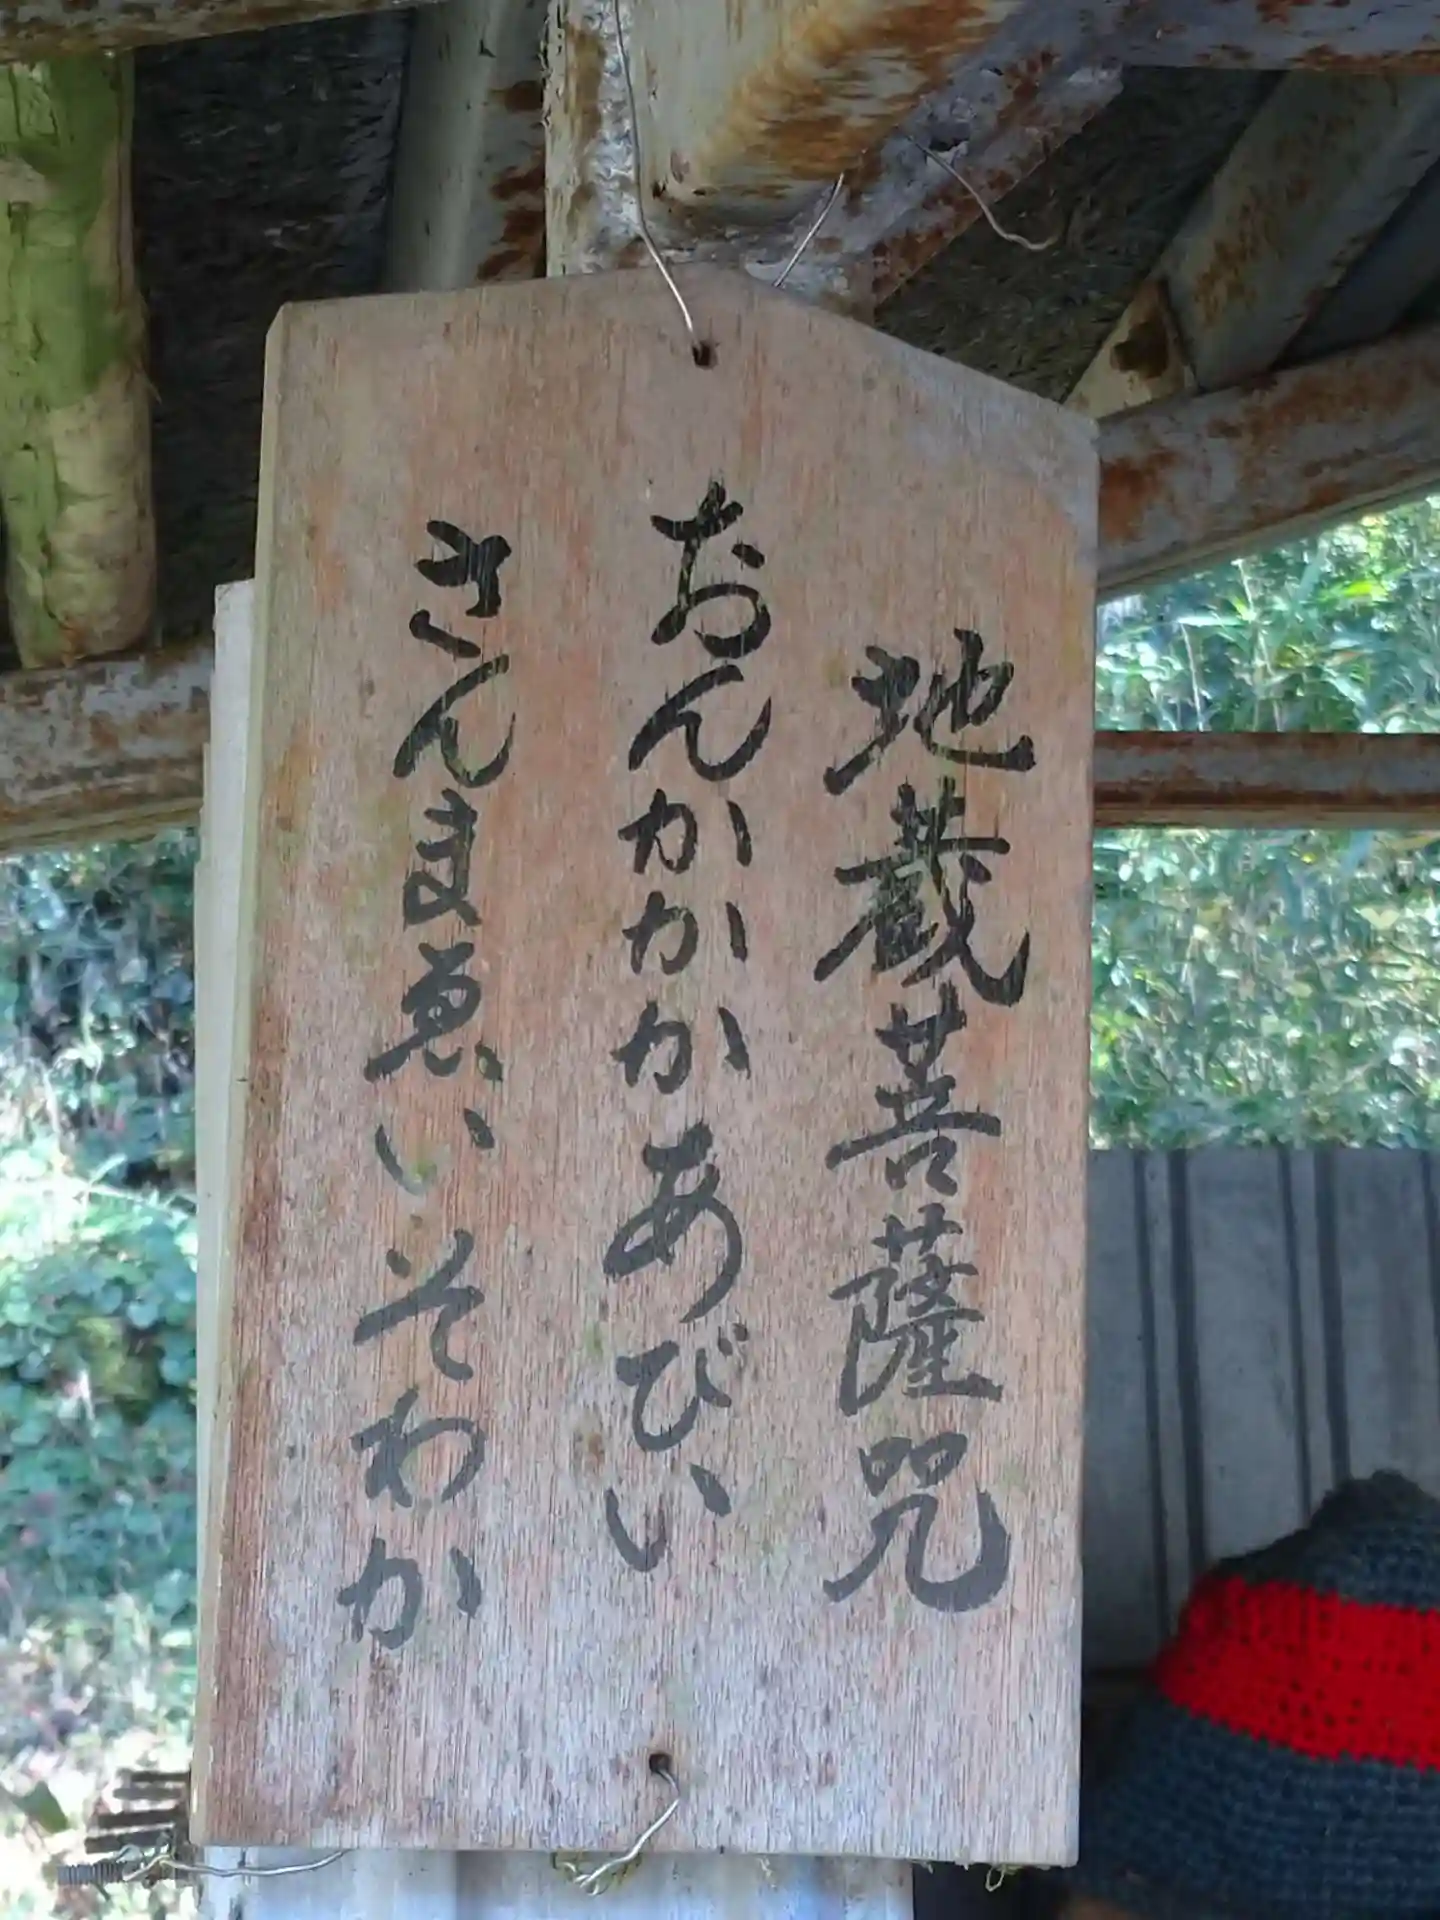 地蔵菩薩咒
おんかかかあびい
さんまゑいそわか